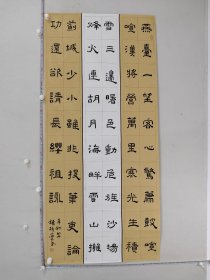 燕臺一望客心驚簫鼓喧
喧漢將營萬里寒光生積
雪三邊曙色動危旌沙場
烽火連胡月海畔雲山擁
薊城少小雖非投筆吏論
功還欲請長纓祖詠